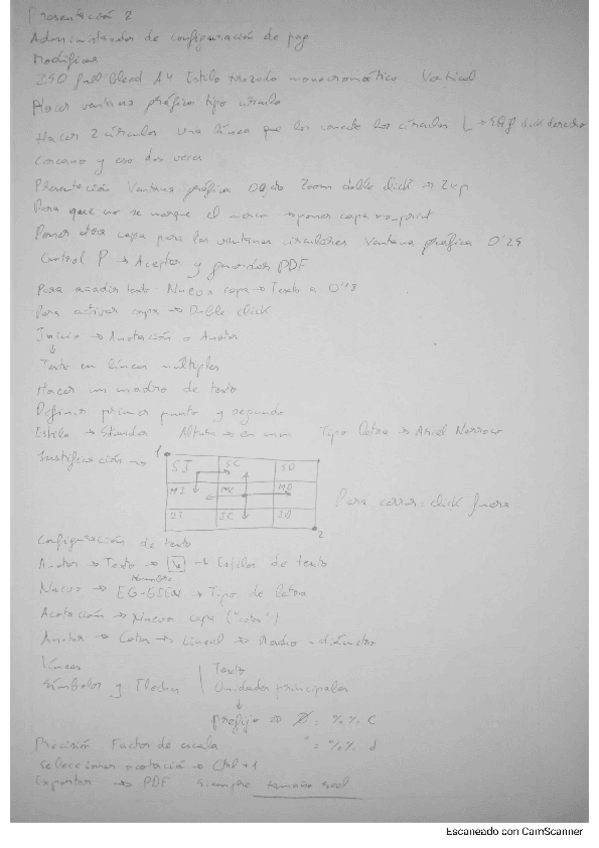 Presentación 2
Administrador de configuración de pag
Modificar
ISO full bleed A4 Estilo trazado monocromático Vertical
Hacer ventana gráfica tipo círculo
Hacer 2 círculos una línea que los conecte los círculos L → click derecho
cercano y eso dos veces
Presentación Ventana gráfica Zoom doble click →
Para que no se marque el marco → poner capa nonprint
Poner otra capa para las ventanas circulares Ventana gráfica 0'25
Control P → Aceptar y guardar PDF
Para añadir texto Nueva capa → Texto a 0'18
Para activar capa → Doble click
Inicio → Anotación o Anotar
↓
Texto en líneas múltiples
Hacer un cuadro de texto
Definir primer punto y segundo
Estilo → Standar Altura → en mm Tipo letra → Arial Narrow
Justificación → 1
SI SC SD
MI MC MD
II IC ID
2
Para cerrar: click fuera
Configuración de texto
Anotar → Texto → ↘ → Estilos de texto
Nombre
Nuevo → → Tipo de letra
Acotación → Nueva capa ("cotas")
Anotar → Cotas → Lineal → Radio - diámetro
Líneas | Texto
Símbolos y Flechas | Unidades principales
↓
Prefijo ∅ = %%C
Precisión Factor de escala ° = %% d
Seleccionar acotación → Ctrl + 1
Exportar → PDF siempre tamaño real
Escaneado con CamScanner